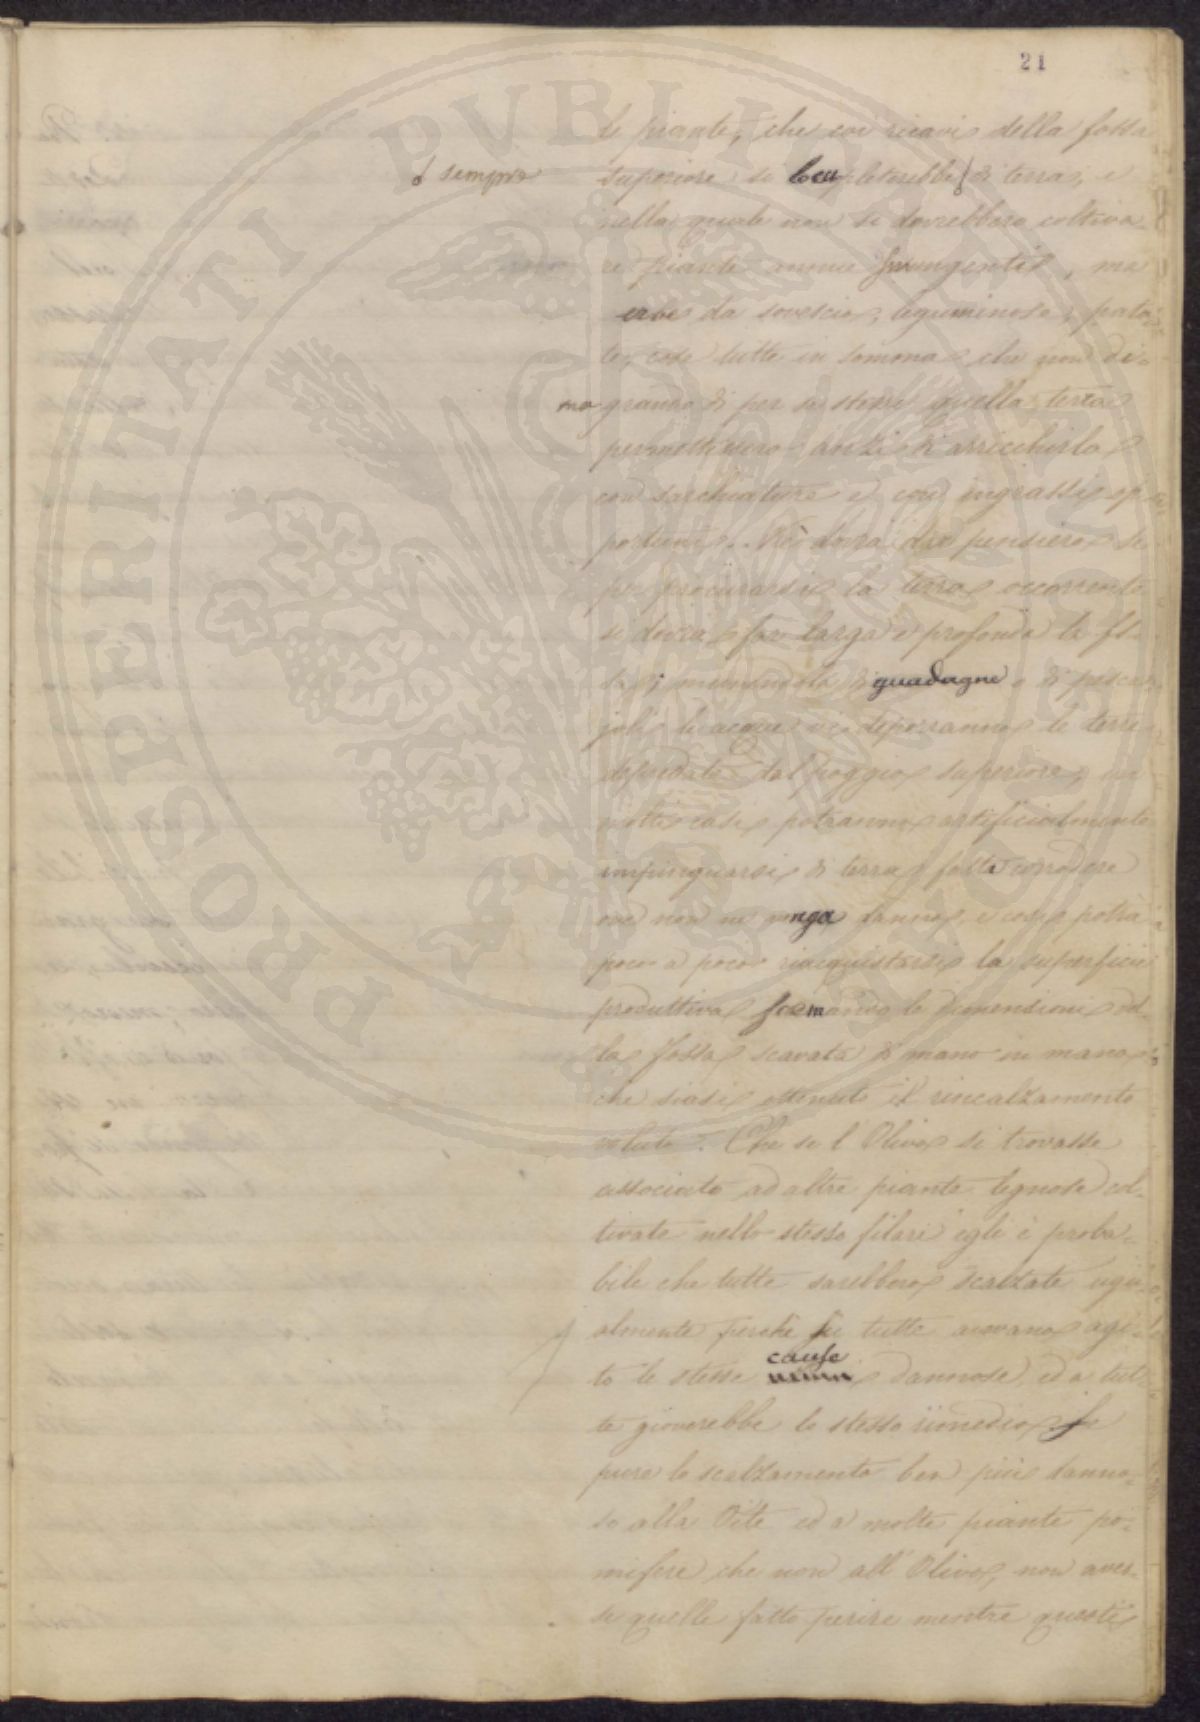 21
le piante, che coi ricavi della fossa
sempre
superiore si completerebbe di terra, e
nella quale non si dovrebbero coltiva-
re piante annue smungenti, ma
erbe da sovescio, leguminose, pata-
te, cose tutte in somma che non di-
magranno di per se stesse quella terra
permettessero anzi di arricchirla
con sarchiature e con ingrassi op-
portuni. Nè dovrà dar pensiero se
per procurarsi la terra occorrente
si dovrà far larga e profonda la fos-
sa; munendola di guadagne o di pescia-
joli le acque vi deporranno le terre
depredate dal poggio superiore, in
molti casi potranno artificialmente
impinguarsi di terra fatta corrodere
ove non ne venga danno, e così potrà
poco a poco riacquistarsi la superficie
produttiva scemando le dimensioni del-
la fossa scavata di mano in mano
che siasi ottenuto il rincalzamento
voluto. Che se l'Olivo si trovasse
associato ad altre piante legnose col-
tivate nello stesso filare egli è proba-
bile che tutte sarebbero scalzate egu-
almente perchè su tutte avevano agi-
to le stesse cause dannose, ed a tut-
te gioverebbe lo stesso rimedio, se
pure lo scalzamento ben più danno-
so alla Vite ed a molte piante po-
mifere che non all'Olivo, non aves-
se quelle fatto perire mentre questi
PROSPERITATI PUBLICAE AUGENDAE